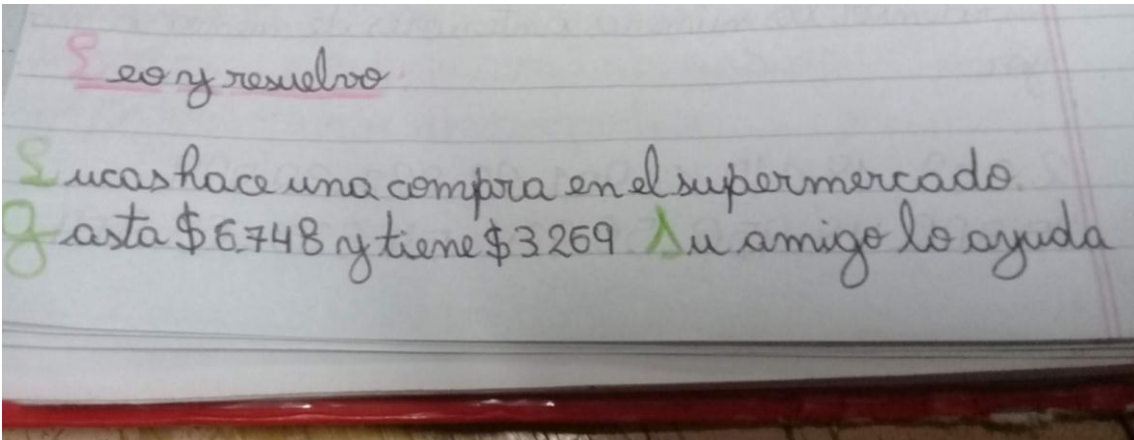 Leo y resuelvo
Lucas hace una compra en el supermercado.
gasta $6.748 y tiene $3269 Su amigo lo ayuda